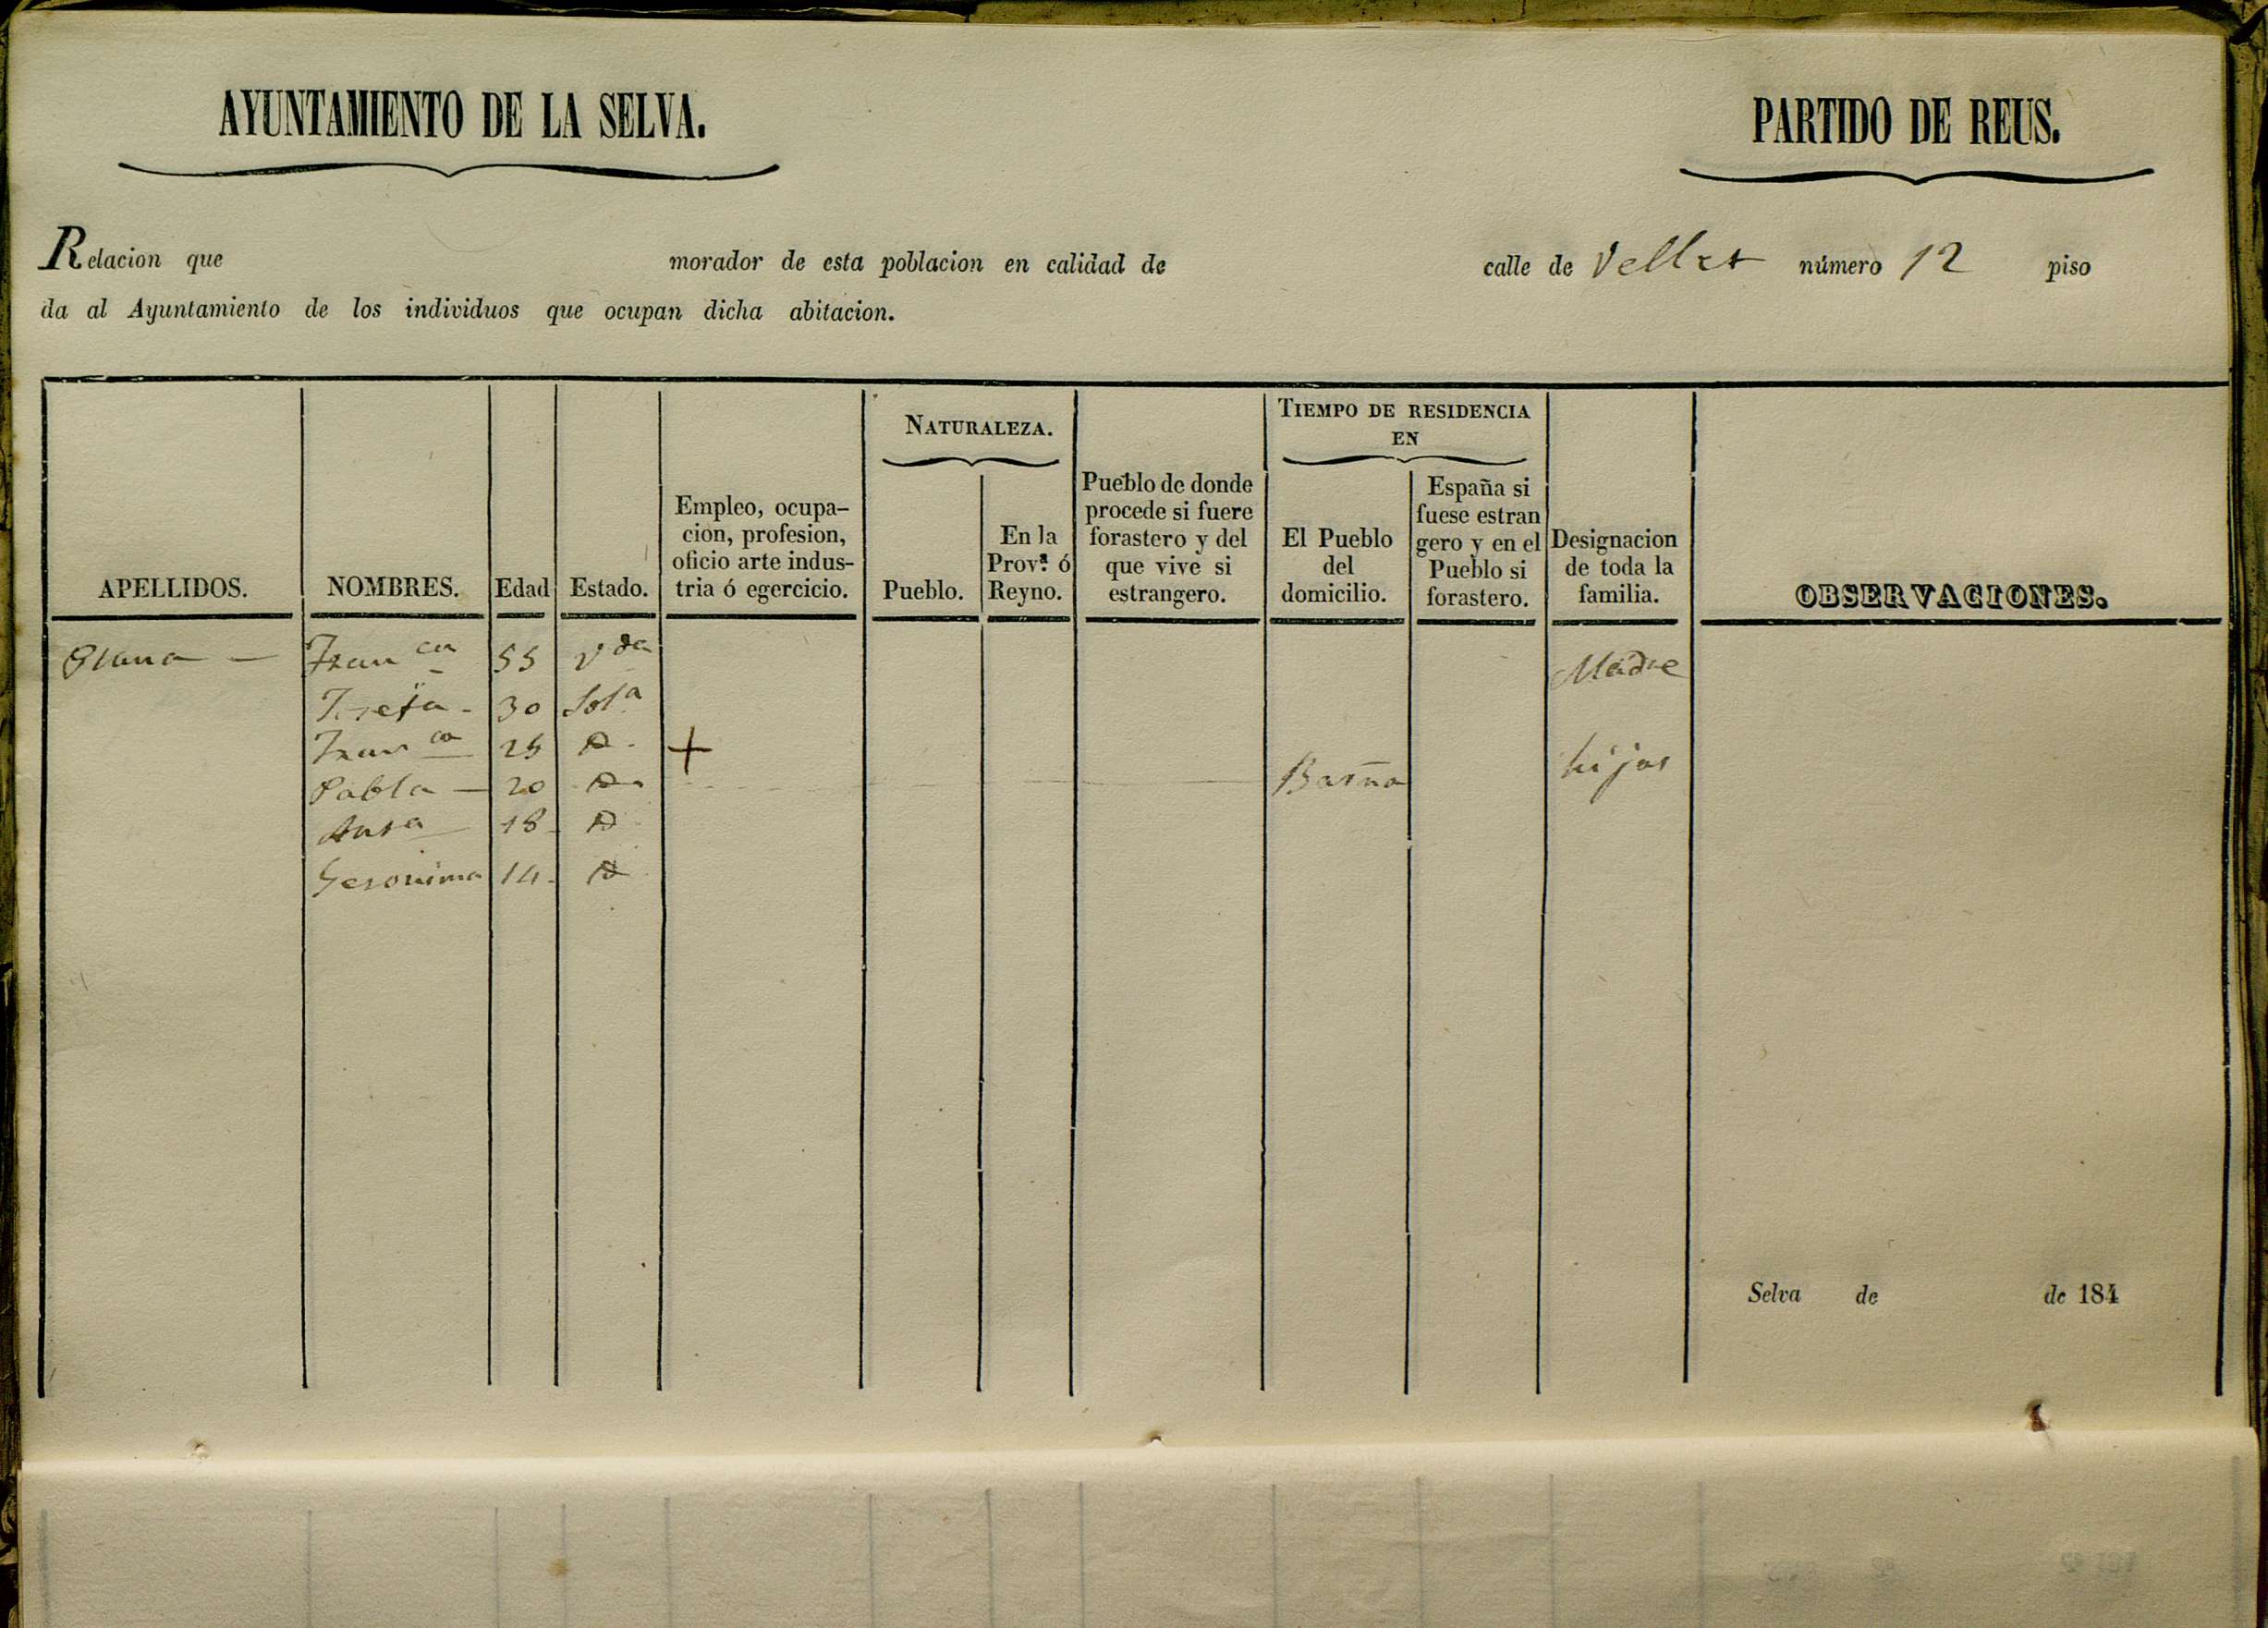 AYUNTAMIENTO DE LA SELVA.
PARTIDO DE REUS.
Relacion que morador de esta poblacion en calidad de calle de Vellet número 12 piso
da al Ayuntamiento de los individuos que ocupan dicha abitacion.
APELLIDOS.
NOMBRES.
Edad
Estado.
Empleo, ocupa-
cion, profesion,
oficio arte indus-
tria ó egercicio.
NATURALEZA.
Pueblo.
En la
Prov.ª ó
Reyno.
Pueblo de donde
procede si fuere
forastero y del
que vive si
estrangero.
TIEMPO DE RESIDENCIA
EN
El Pueblo
del
domicilio.
España si
fuese estran
gero y en el
Pueblo si
forastero.
Designacion
de toda la
familia.
OBSERVACIONES.
Plana — Fran ca 55 Vda Madre
Josefa - 30 Solª
Fran ca 25 D. + hijas
Pabla — 20 D. Barna
18 D
Geronima 14 D
Selva de de 184